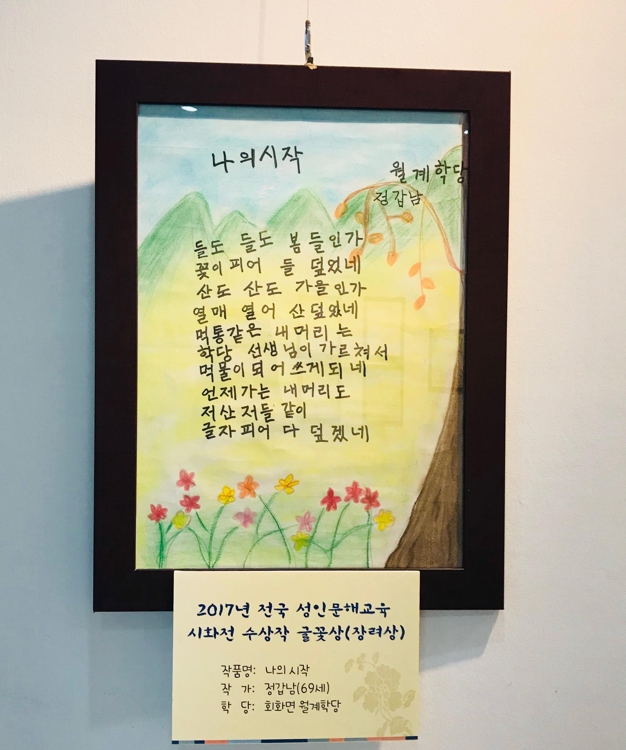 나의시작
월계학당
정갑남
들도 들도 봄들인가
꽃이피어 들 덮었네
산도 산도 가을인가
열매 열어 산덮었네
먹통같은 내머리는
학당 선생님이가르쳐서
먹물이되어쓰게되네
언제가는 내머리도
저산저들같이
글자피어 다 덮겠네
2017년 전국 성인문해교육
시화전 수상작 글꽃상(장려상)
작품명: 나의 시작
작 가: 정갑남(69세)
학 당: 회화면 월계학당